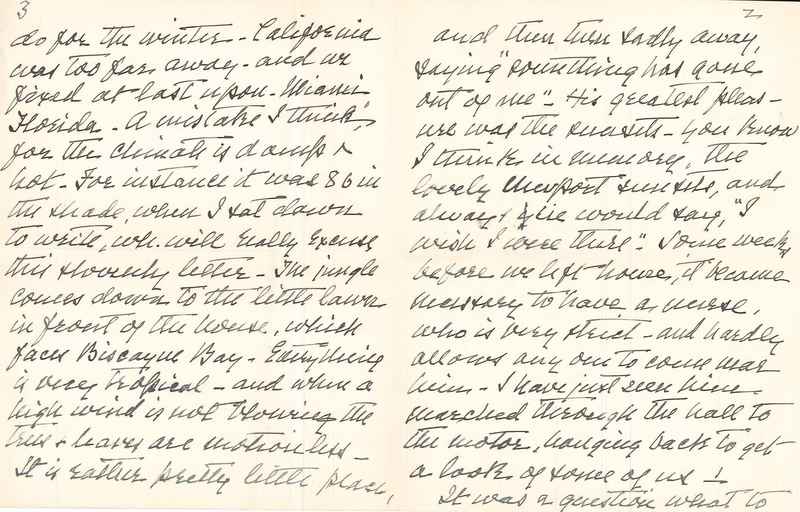 2
and then turn sadly away,
saying "something has gone
out of me". His greatest pleas-
ure was the sunsets - you know
I think in memory, the
lovely Newport sunsets, and
always would say, "I
wish I were there". Some weeks
before we left home, it became
necessary to have a nurse,
who is very strict - and hardly
allows any one to come near
him - I have just seen him
marched through the hall to
the motor, hanging back to get
a look of some of us !
It was a question what to
3
do for the winter - California
was too far away - and we
fixed at last upon - Miami
Florida - A mistake I think,
for the climate is damp &
hot - For instance it was 86 in
the shade, when I sat down
to write, wh. will really excuse
this slovenly letter - The jungle
comes down to the little lawn
in front of the house, which
faces Biscayne Bay - Everything
is very tropical - and when a
high wind is not blowing the
trees & leaves are motionless -
It is rather pretty little place,